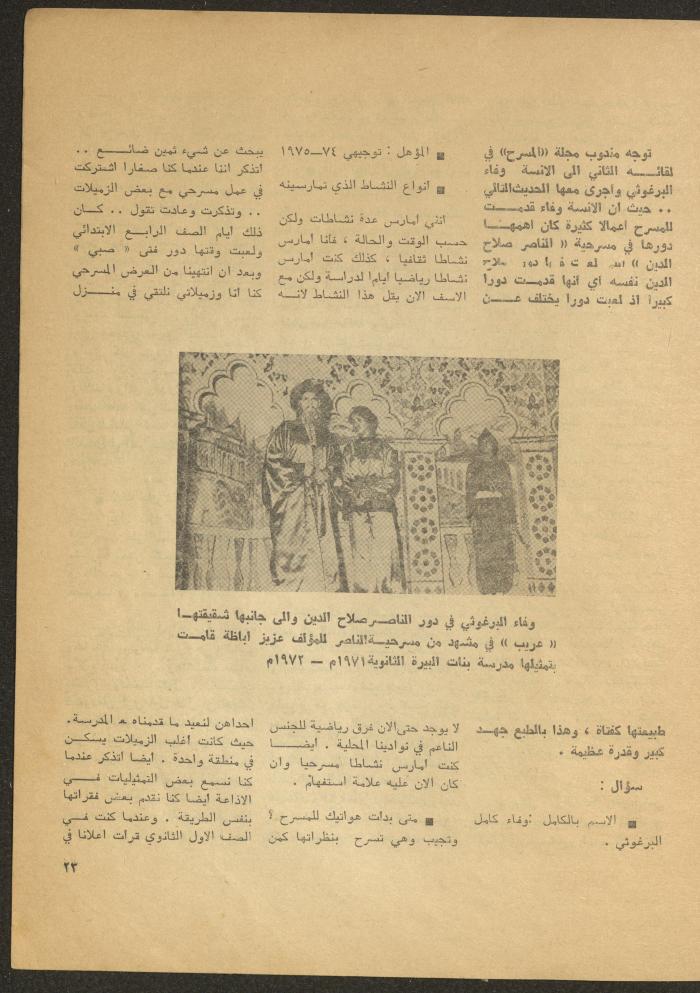 توجه مندوب مجلة «المسرح» في
لقائــه الثاني الى الانسة وفاء
البرغوثي واجرى معها الحديث التالي
.. حيث ان الانسة وفاء قدمــت
للمسرح اعمالا كثيرة كان اهمهــا
دورها في مسرحية « الناصر صلاح
الدين » دور صلاح
الدين نفسه اي انها قدمــت دورا
كبيرا اذ لعبت دورا يختلف عــن
طبيعتها كفتاة ، وهذا بالطبع جهــد
كبير وقدرة عظيمة .
سؤال :
■ الاسم بالكامل : وفاء كامل
البرغوثي .
■ المؤهل : توجيهي ٧٤ــ١٩٧٥
■ انواع النشاط الذي تمارسينه
انني امارس عدة نشاطات ولكن
حسب الوقت والحالة ، فأنا امارس
نشاطا ثقافيا ، كذلك كنت امارس
نشاطا رياضيا ايام الدراسة ولكن مع
الاسف الان يقل هذا النشاط لانــه
لا يوجد حتى الان فرق رياضية للجنس
الناعم في نوادينا المحلية . ايضــا
كنت امارس نشاطا مسرحيا وان
كان الان عليه علامة استفهام .
■ متى بدات هوايتك للمسرح ؟
وتجيب وهي تسرح بنظراتها كمن
يبحث عن شيء ثمين ضائــع ..
اتذكر اننا عندما كنا صغارا اشتركت
في عمل مسرحي مع بعض الزميلات
.. وتذكرت وعادت تقول .. كــان
ذلك ايام الصف الرابــع الابتدائي
ولعبت وقتها دور فتى « صبي »
وبعد ان انتهينا من العرض المسرحي
كنا انا وزميلاتي نلتقي في منــزل
احداهن لنعيد ما قدمناه المدرسة.
حيث كانت اغلب الزميلات يسكــن
في منطقة واحدة . ايضا اتذكر عندما
كنا نسمع بعض التمثيليات فــي
الاذاعة ايضا كنا نقدم بعض فقراتها
بنفس الطريقة . وعندما كنت فــي
الصف الاول الثانوي قرات اعلانا في
وفاء البرغوثي في دور الناصــر صلاح الدين والى جانبها شقيقتهــا
« عريب » في مشهد من مسرحيــة الناصر للمؤلف عزيز اباظة قامــت
بتمثيلها مدرسة بنات البيرة الثانوية ١٩٧١م ــ ١٩٧٢م
٢٣